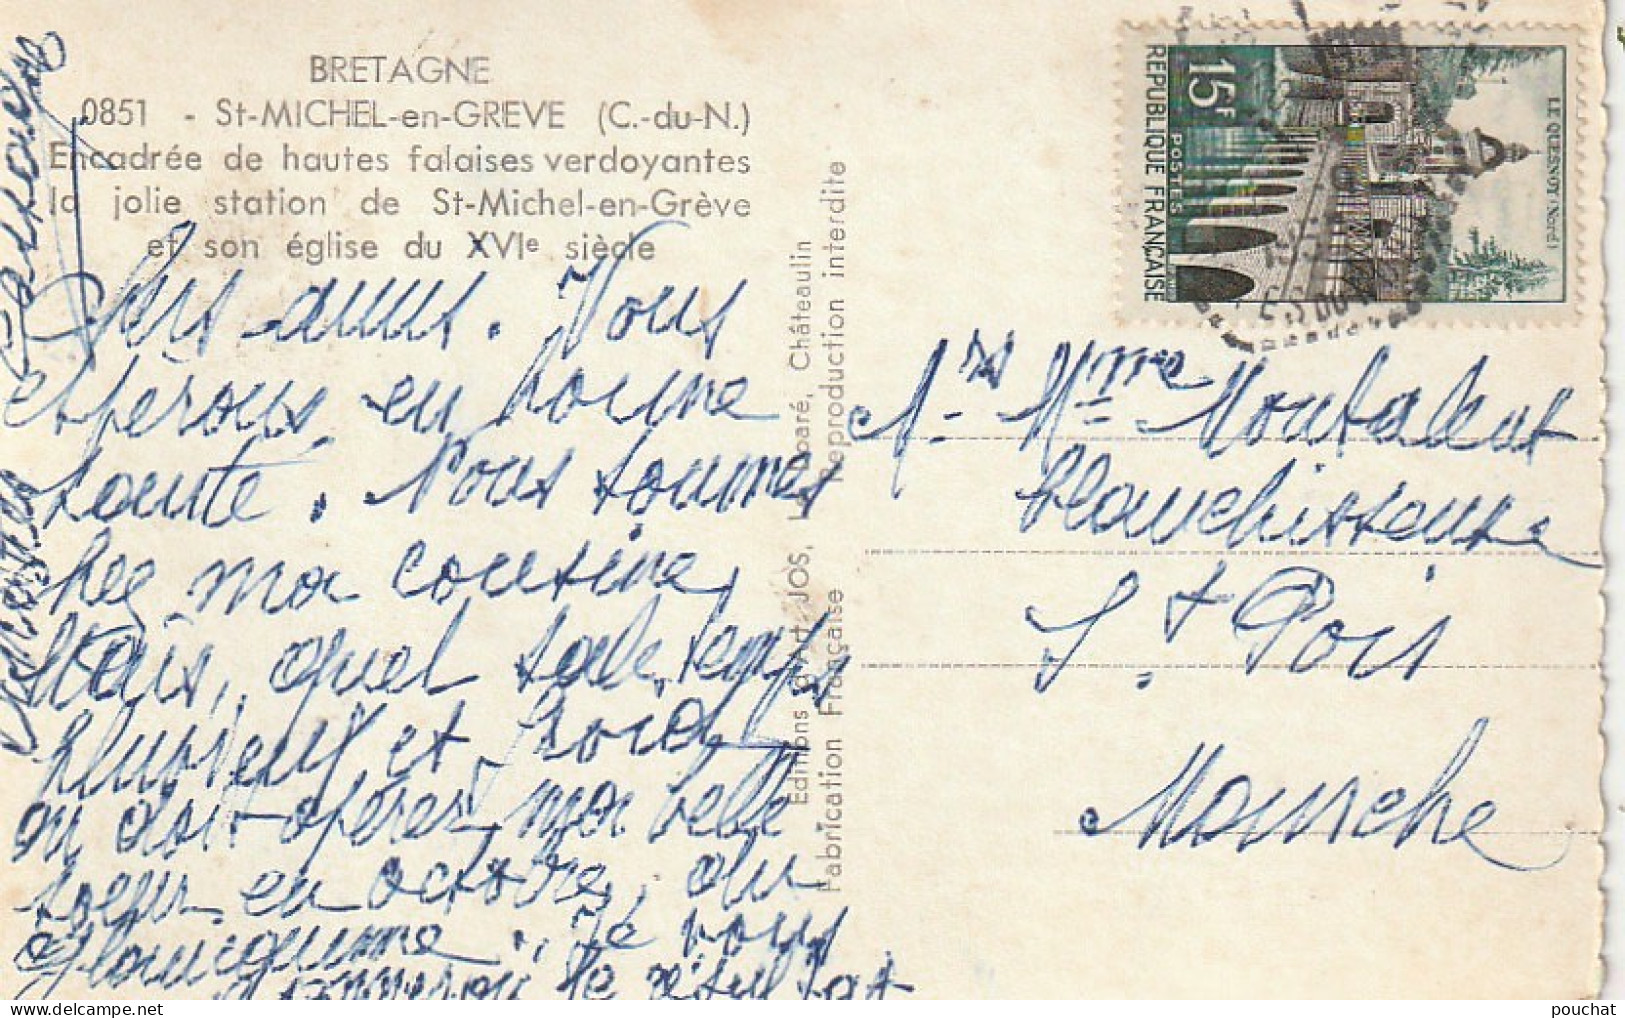 BRETAGNE
0851 - St-MICHEL-en-GREVE (C.-du-N.)
Encadrée de hautes falaises verdoyantes
la jolie station de St-Michel-en-Grève
et son église du XVIe siècle
Chers amis. Vous
esperons en bonne
santé. Nous sommes
chez ma cousine,
Mais, quel sale temps
pluvieux et froid
on doit opérer ma belle
soeur en octobre, du
glaucome. Je vous
donnerai le résultat
Editions d'Art JOS, Le Doaré, Châteaulin
Fabrication Française Reproduction interdite
REPUBLIQUE FRANÇAISE
POSTES
15F
LE QUESNOY (Nord)
Mr Mme Montalent
blanchisseuse
St. Pois
Manche
delcampe.net
pouchat